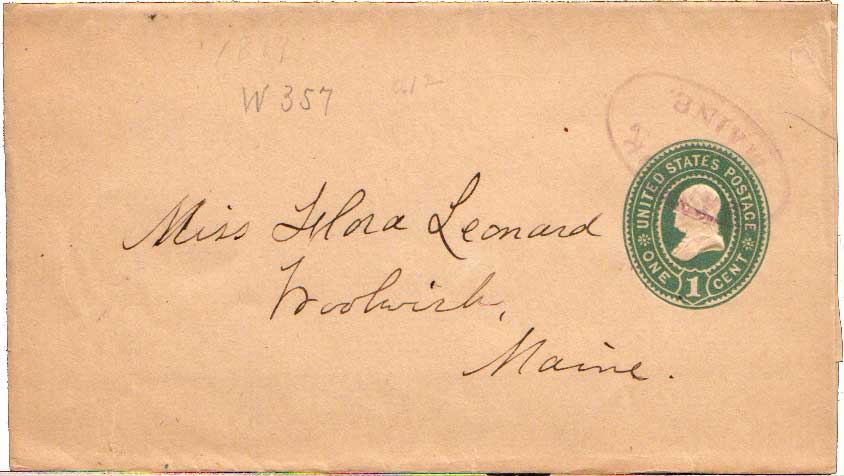 W 357
MAINE
UNITED STATES POSTAGE
ONE 1 CENT
Miss Flora Leonard
Woolwich,
Maine.